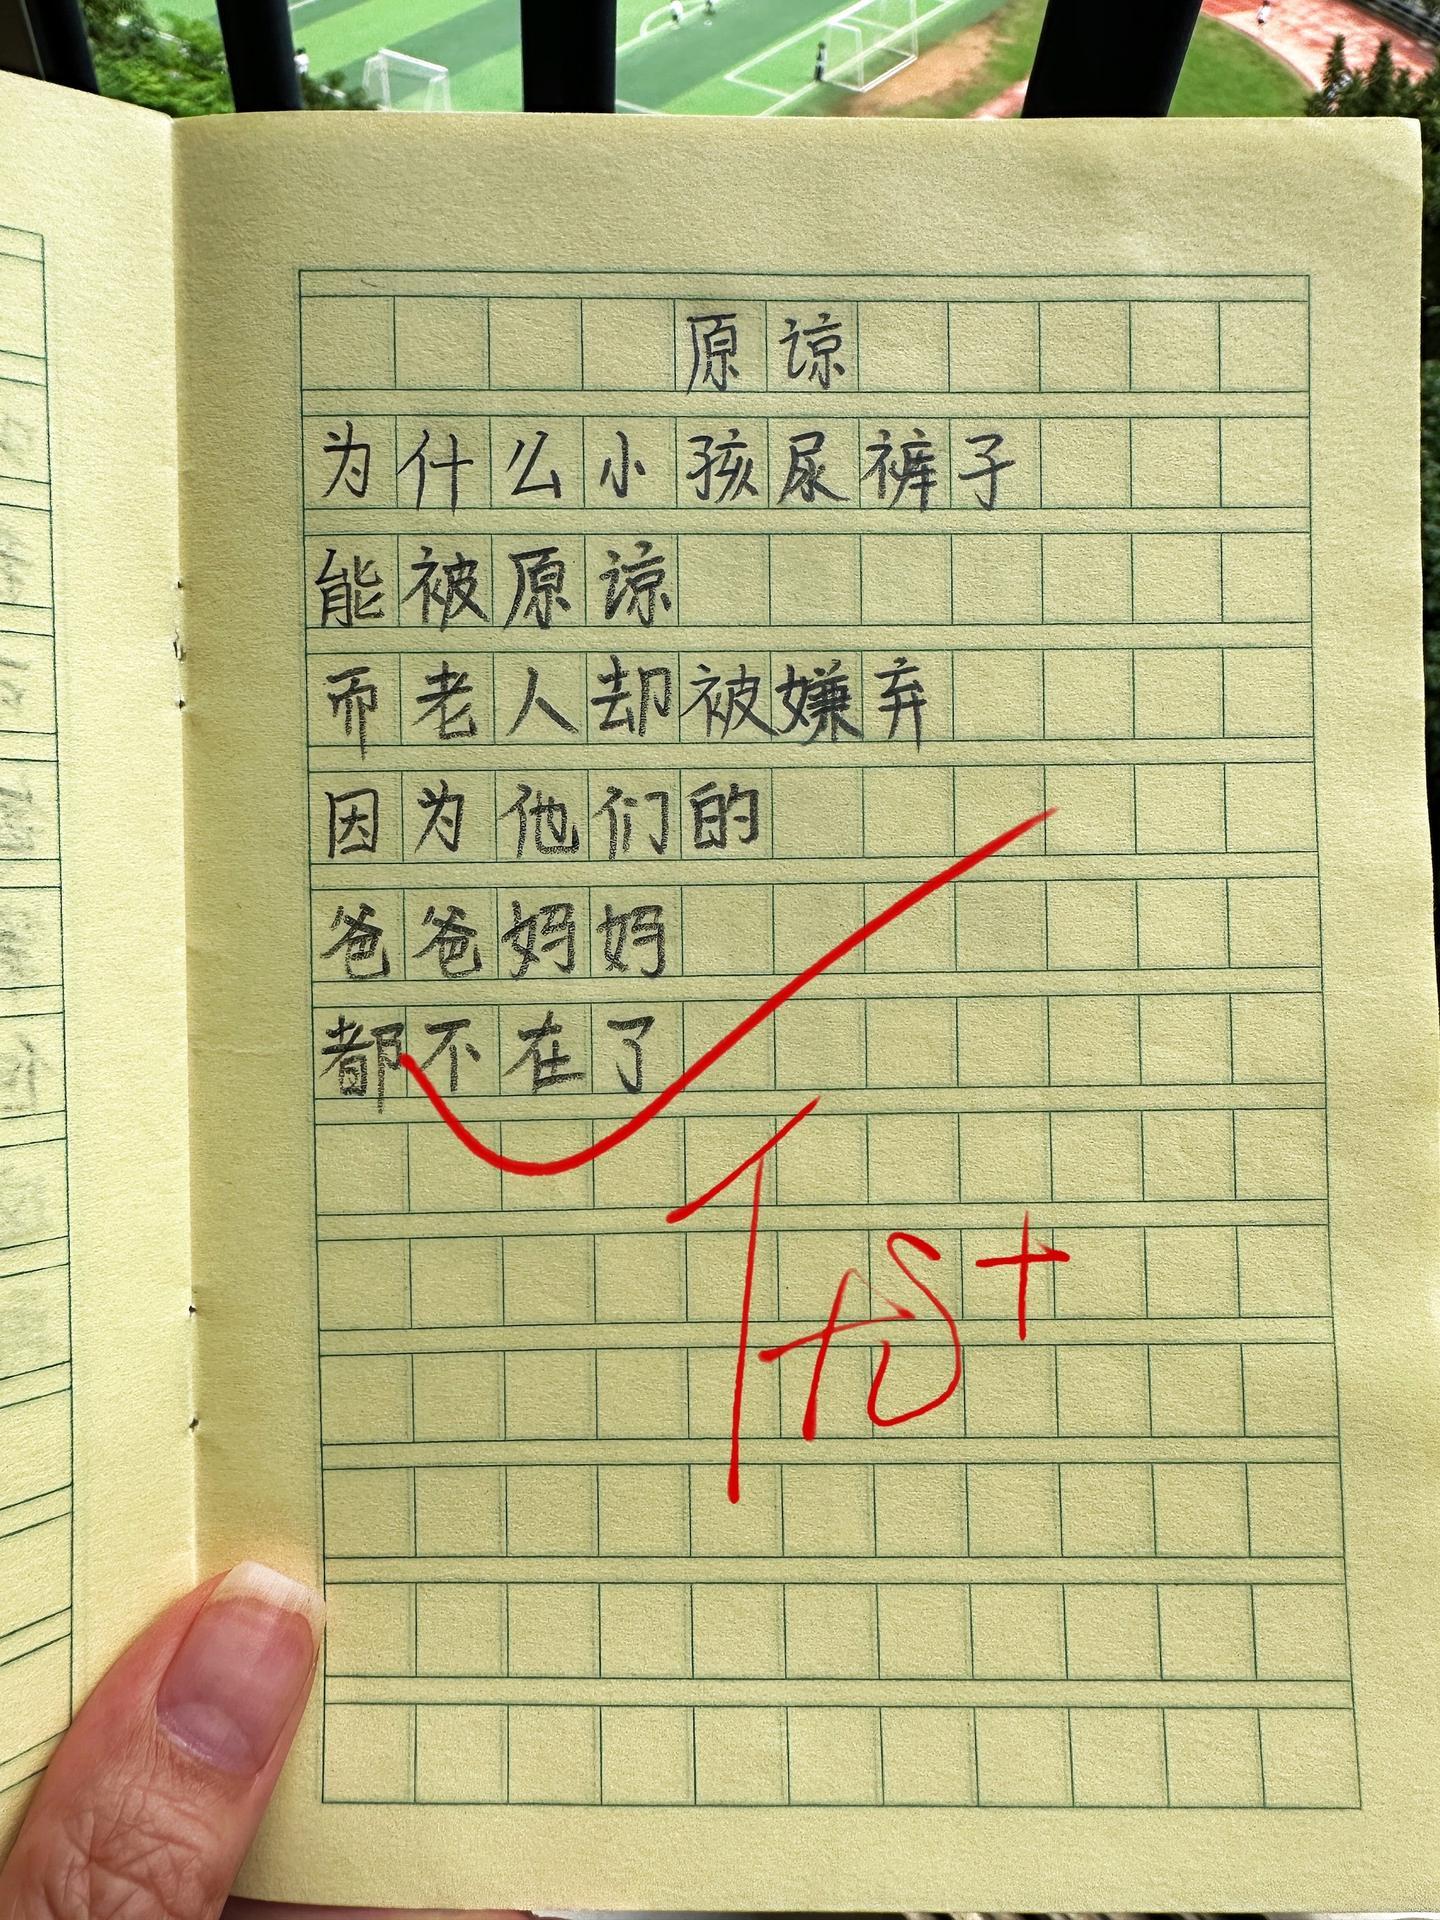 原谅
为什么小孩尿裤子
能被原谅
而老人却被嫌弃
因为他们的
爸爸妈妈
都不在了
优+